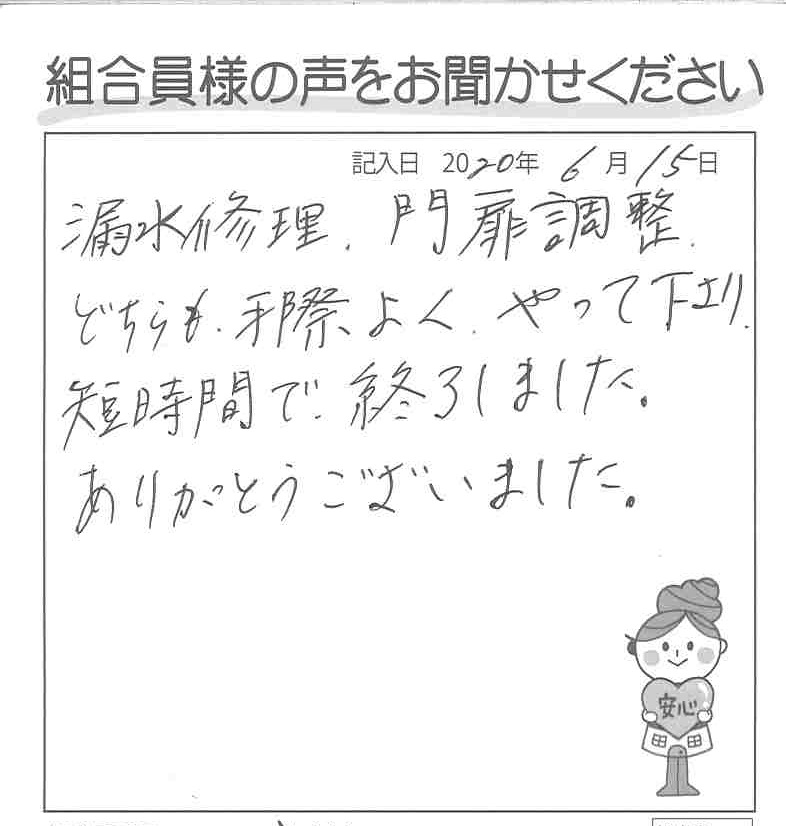 組合員様の声をお聞かせください
記入日 2020年 6月15日
漏水修理、門扉調整、
どちらも、手際よく、やって下さり、
短時間で、終了しました。
ありがとうございました。
安心